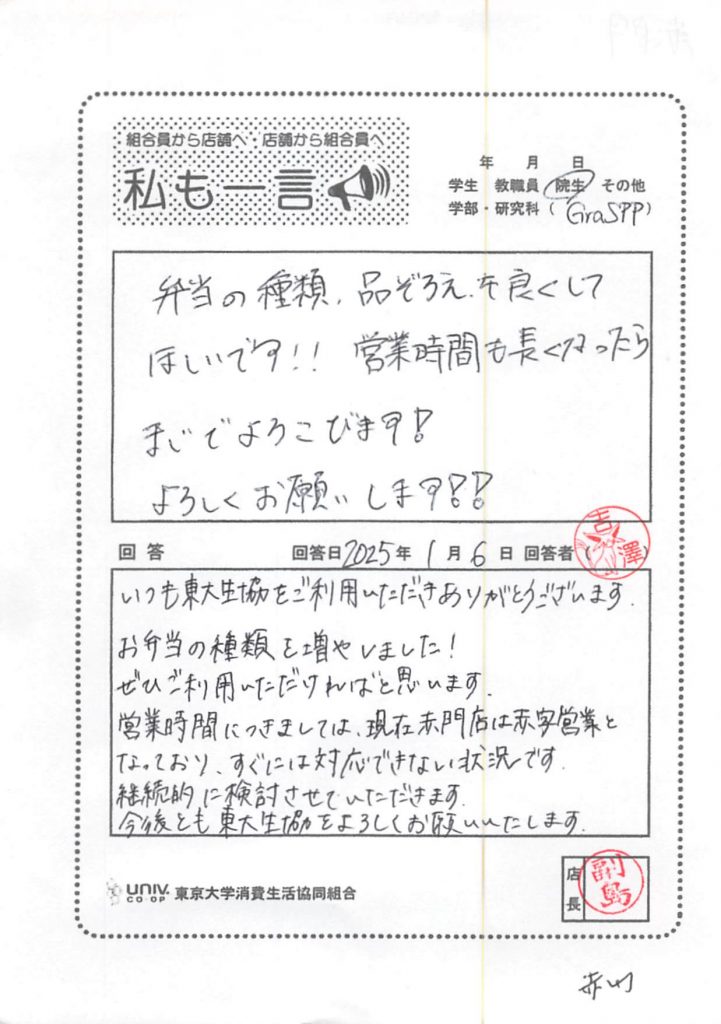 組合員から店舗へ・店舗から組合員へ
私も一言
年 月 日
学生 教職員 院生 その他
学部・研究科 ( GraSPP )
弁当の種類、品ぞろえを良くして
ほしいです!! 営業時間も長くなったら
まじでよろこびます!
よろしくお願いします!!
回答 回答日 2025年 1月 6日 回答者 (吉澤)
いつも東大生協をご利用いただきありがとうございます.
お弁当の種類を増やしました!
ぜひご利用いただければと思います.
営業時間につきましては、現在赤門店は赤字営業と
なっており、すぐには対応できない状況です.
継続的に検討させていただきます.
今後とも東大生協をよろしくお願いいたします.
UNIV. CO-OP 東京大学消費生活協同組合
店長 副島
赤門